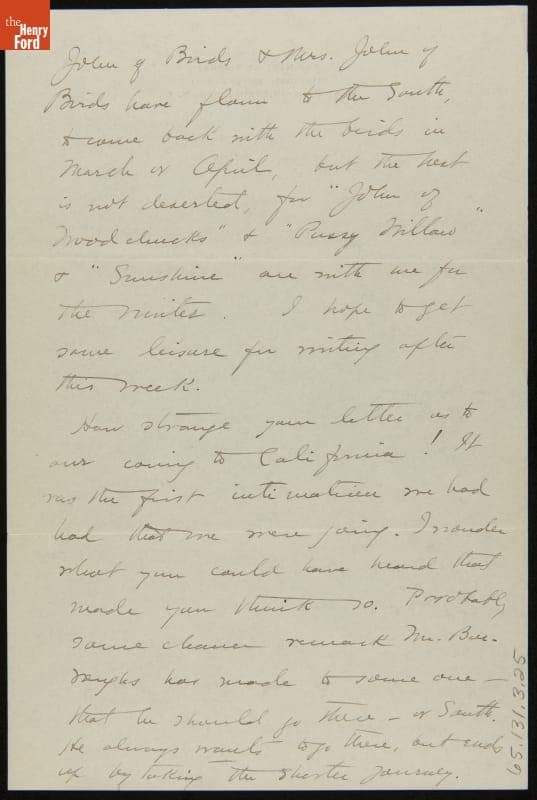 the
Henry
Ford
John of Birds & Mrs. John of
Birds have flown to the South,
to come back with the birds in
March or April, but the nest
is not deserted, for "John of
Woodchucks" & "Pussy Willow"
& "Sunshine" are with me for
the winter. I hope to get
some leisure for writing after
this week.
How strange your letter as to
our coming to California! It
was the first intimation we had
had that we were going. I wonder
what you could have heard that
made you think so. Probably
some chance remark Mr. Bur-
roughs has made to some one —
that he should go there — or South.
He always wants to go there, but ends
up by taking the shorter journey.
65.131.3.25